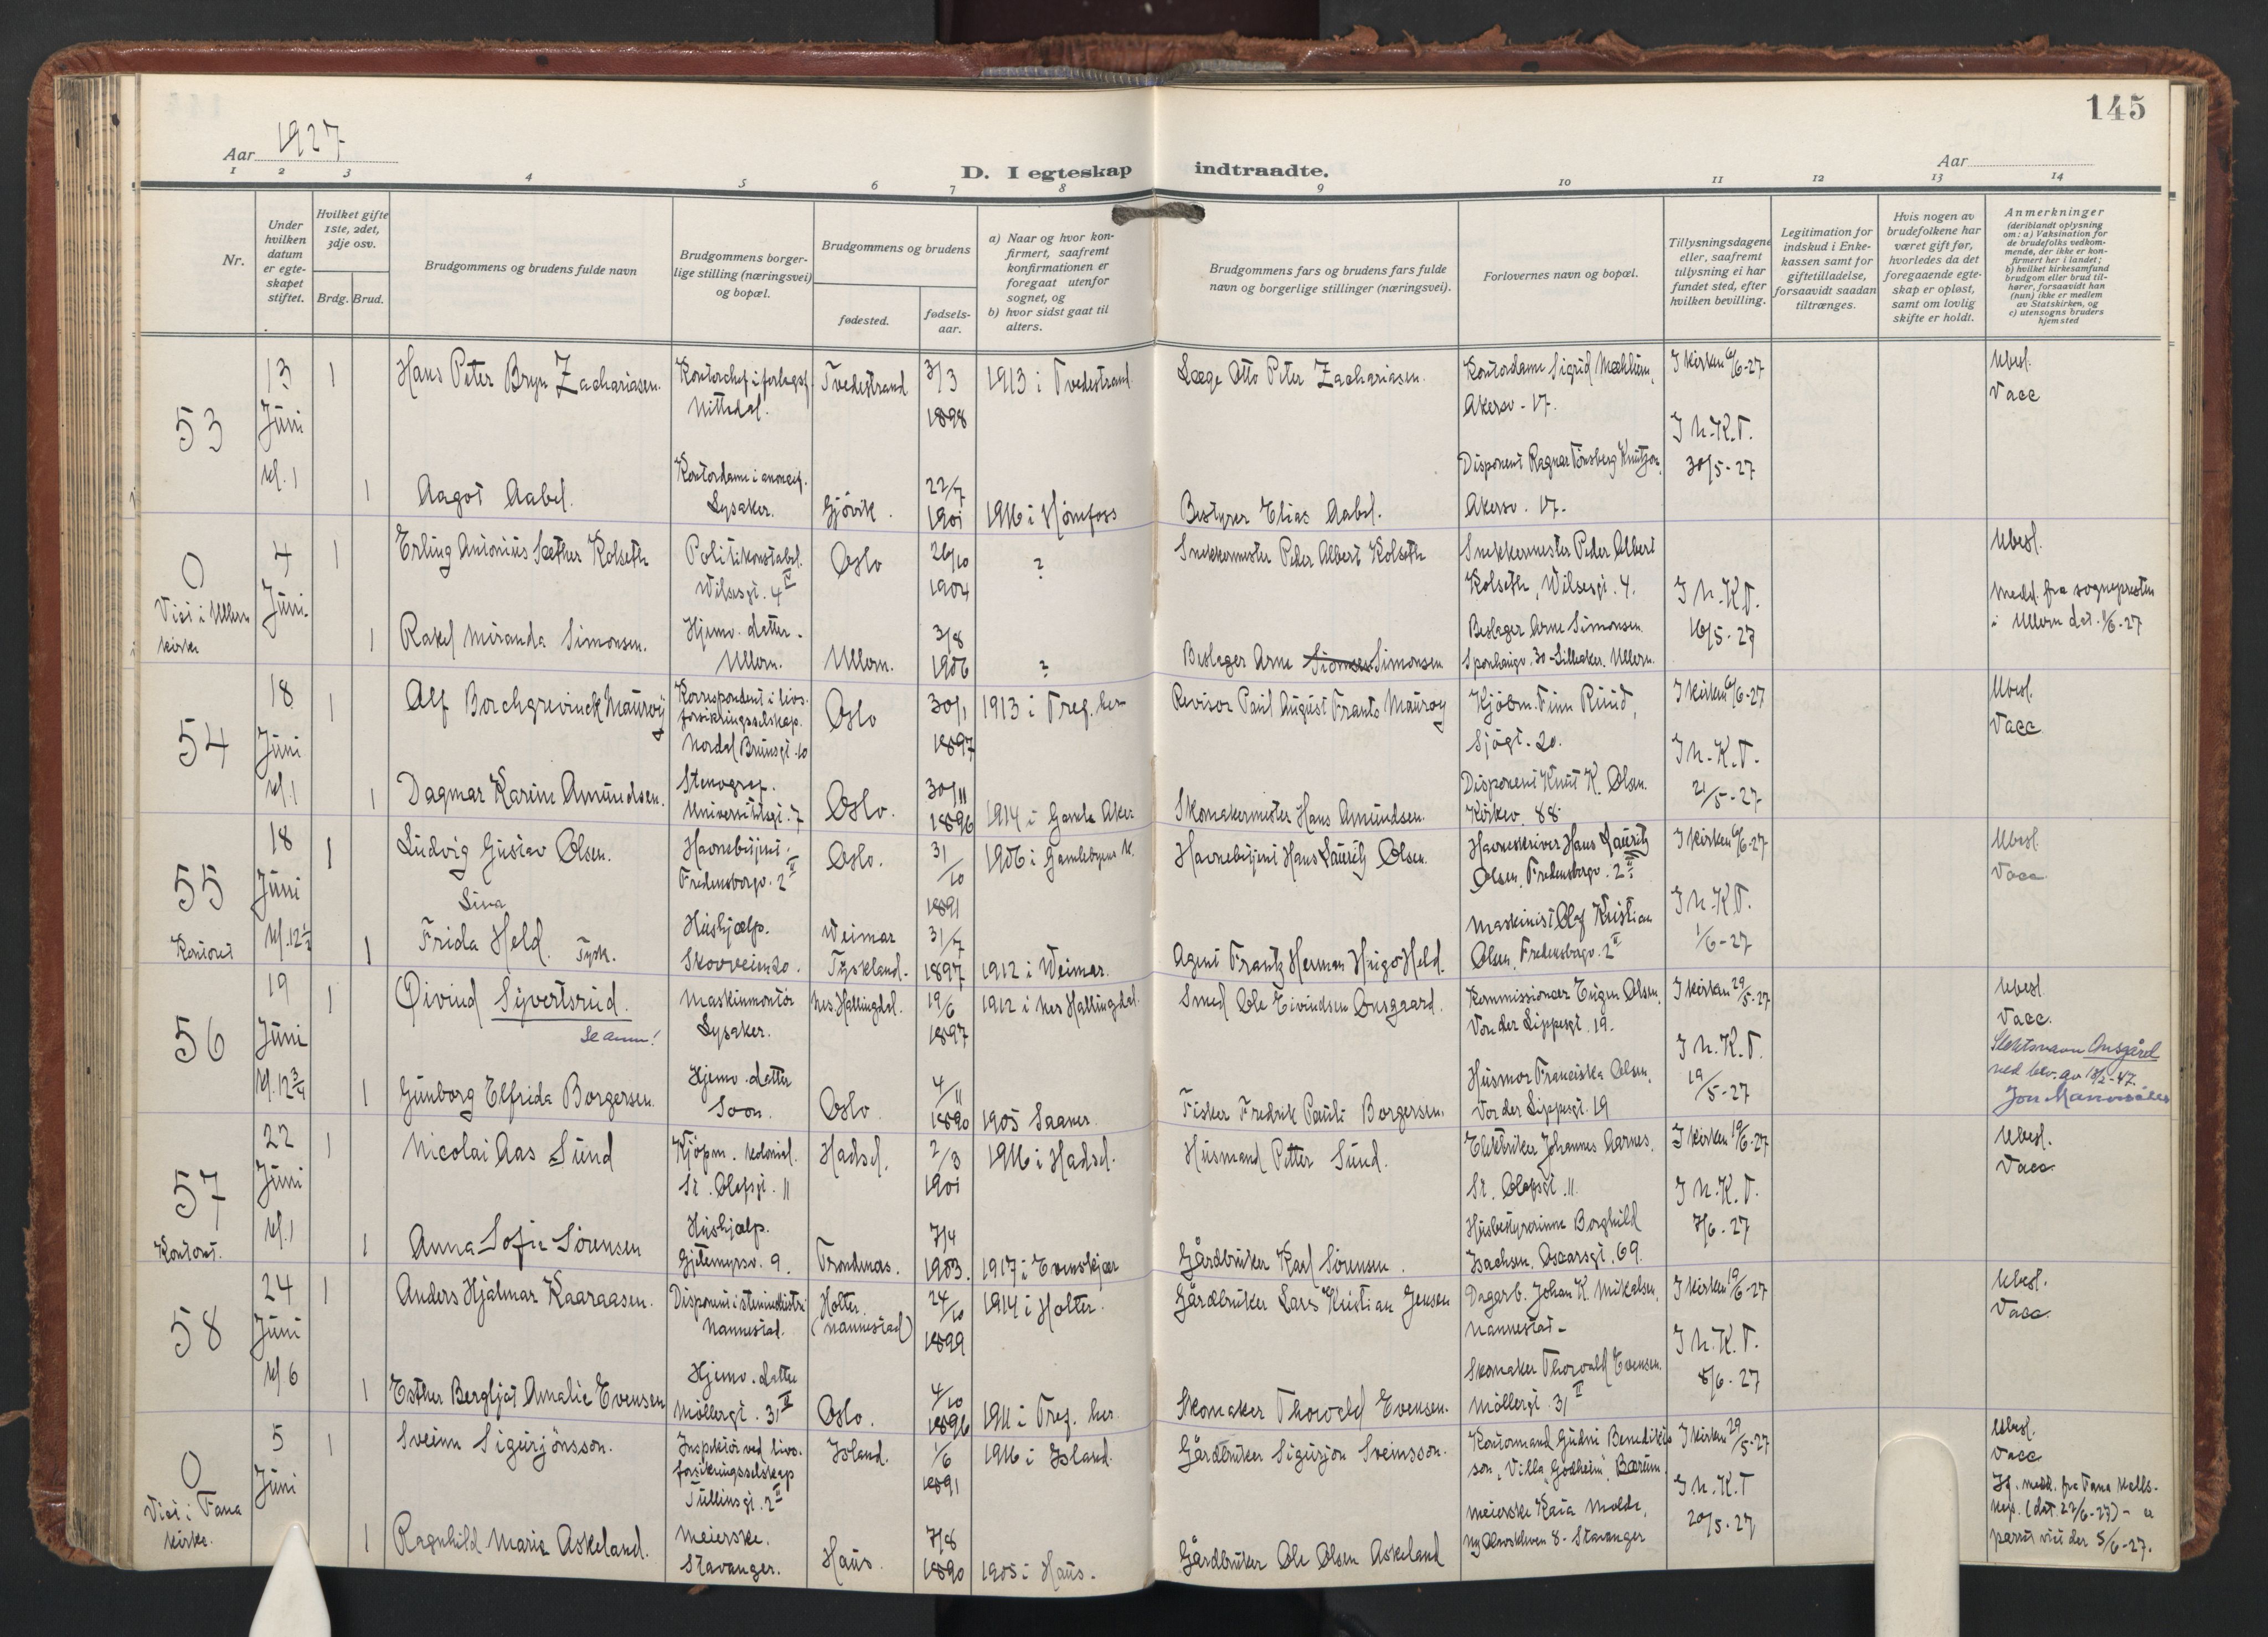 145
Aar 1927
D. I egteskap indtraadte.
Aar
1 2 3 4 5 6 7 8 9 10 11 12 13 14
Nr.
Under
hvilken
datum
er egte-
skapet
stiftet.
Hvilket gifte
1ste, 2det,
3dje osv.
Brdg. Brud.
Brudgommens og brudens fulde navn
Brudgommens borger-
lige stilling (næringsvei)
og bopæl.
Brudgommens og brudens
fødested.
fødsels-
aar.
a) Naar og hvor kon-
firmert, saafremt
konfirmationen er
foregaat utenfor
sognet, og
b) hvor sidst gaat til
alters.
Brudgommens fars og brudens fars fulde
navn og borgerlige stillinger (næringsvei).
Forlovernes navn og bopæl.
Tillysningsdagene
eller, saafremt
tillysning ei har
fundet sted, efter
hvilken bevilling.
Legitimation for
indskud i Enke-
kassen samt for
giftetilladelse,
forsaavidt saadan
tiltrænges.
Hvis nogen av
brudefolkene har
været gift før,
hvorledes da det
foregaaende egte-
skap er opløst,
samt om lovlig
skifte er holdt.
Anmerkninger
(deriblandt oplysning
om: a) Vaksination for
de brudefolks vedkom-
mende, der ikke er kon-
firmert her i landet;
b) hvilket kirkesamfund
brudgom eller brud til-
hører, forsaavidt han
(hun) ikke er medlem
av Statskirken, og
c) utensogns bruders
hjemsted
53
13
Juni
kl. 1
1
Hans Peter Bryn Zachariasen.
Kontorchef i forlagsf.
Nittedal.
Tvedestrand
3/3
1898
1913 i Tvedestrand
Læge Otto Peter Zachariasen.
Kontordame Sigrid Mæhlum,
Akersv. 17.
I kirken 6/6-27
I N.K.T.
30/5-27
Ubesl.
Vacc
1
Aagot Aabel.
Kontordame i
Lysaker.
Gjövik.
22/7
1901
1916 i Hönefoss
Bestyrer Elias Aabel.
Disponent Ragnar Tönsberg Knutzon,
Akersv. 17.
0
Viet i Ullern
kirke
4
Juni.
1
Erling Antonius Sæther Kolseth
Politikonstabel.
Wilsesgt. 4 IV
Oslo
26/10
1904
?
Snekkermester Peder Albert Kolseth
Snekkermester Peder Albert
Kolseth, Wilsesgt. 4.
I N.K.T.
16/5-27
Ubesl.
Medd. fra sognepresten
i Ullern dat. 1/6-27
1
Rakel Miranda Simonsen.
Hjemv. datter.
Ullern.
Ullern.
3/8
1906
?
Beslager Arne Simonsen
Beslager Arne Simonsen
Sponhaugv. 30 - Lilleaker. Ullern.
54
18
Juni
kl. 1
1
Alf Borchgrevinck Mauroy
Korrespondent i livs-
forsikringsselskap.
Nordal Brunsgt. 10
Oslo
30/1
1897
1913 i Tref. her
Revisor Paul August Frants Mauroy
Kjöbm. Finn Ruud,
Sjögt. 20.
I kirken 6/6-27
I N.K.T.
21/5-27
Ubesl.
Vacc.
1
Dagmar Karine Amundsen.
Stenograf.
Universitetsgt. 7
Oslo.
30/11
1896
1914 i Gamle Aker
Skomakermester Hans Amundsen.
Disponent Knut K. Olsen.
Kirkev. 88.
55
Kontoret
18
Juni
kl. 12 1/2
1
Ludvig Gustav Olsen.
Havnebetjent.
Fredensborgv. 2 II
Oslo.
31/10
1891
1906 i Gamlebyens k.
Havnebetjent Hans Lauritz Olsen.
Havneskriver Hans Lauritz
Olsen, Fredensborgv. 2 II
I kirken 6/6-27
I N.K.T.
1/6-27
Ubesl.
Vacc.
1
Lina
Frida Held. Tysk.
Hushjælp.
Skovveien 20.
Weimar
Tyskland.
31/7
1897
1912 i Weimar.
Agent Frantz Herman Hugo Held.
Maskinist Olaf Kristian
Olsen, Fredensborgv. 2 II
56
19
Juni
kl. 12 3/4
1
Øivind Syvertsrud.
Se anm!
Maskinmontör
Lysaker.
Nes. Hallingdal.
19/6
1897
1912 i Nes Hallingdal
Smed Ole Eivindsen Onsgaard.
Kommissionær Eugen Olsen,
Von der Lippesgt. 19.
I kirken 29/5-27
I N.K.T.
19/5-27
Ubesl.
Vacc.
Slektsnavn Onsgård
ved bev. av 18/2-47.
1
Gunborg Elfrida Borgersen.
Hjemv. datter
Soon.
Oslo.
4/11
1890
1905 Saaner.
Fisker Fredrik Pauli Borgersen.
Husmor Franciska Olsen,
Von der Lippesgt. 19
57
Kontoret.
22
Juni
kl. 1
1
Nicolai Aas Sund
Kjöpm. kolonial.
St. Olafsgt. 11
Hadsel.
2/3
1901
1916 i Hadsel.
Husmand Petter Sund.
Elektriker Johannes Aarnes,
St. Olafsgt. 11.
I kirken 19/6-27
I N.K.T.
7/6-27
Ubesl.
Vacc.
1
Anna Sofie Sörensen
Hushjælp.
Gjetemyrsv. 9.
Trondenes.
7/4
1903.
1917 i Evenskjær
Gårdbruker Karl Sörensen.
Husbestyrerinne Borghild
Isachsen, Oscarsgt. 69.
58
24
Juni
kl 6
1
Anders Hjalmar Kaaraasen.
Disponent i stenindustri
Nannestad.
Holter.
(Nannestad)
24/10
1899
1914 i Holter.
Gårdbruker Lars Kristian Jensen
Dagarb. Johan K. Mikalsen,
Nannestad.
I kirken 19/6-27
I N.K.T.
8/6-27
Ubesl.
Vacc.
1
Esther Bergljot Amalie Evensen
Hjemv. datter
Möllergt. 31 II
Oslo.
4/10
1896
1911 i Tref. her
Skomaker Thorvald Evensen.
Skomaker Thorvald Evensen.
Möllergt. 31 II
0
Viet i Fana
kirke.
5
Juni
1
Sveinn Sigurjönsson.
Inspektör ved livs-
forsikringsselskap
Tullinsgt. 2 II
Island.
1/6
1891
1916 i Island.
Gårdbruker Sigurjon Sveinsson.
Kontormand Gudni Benedikts
son, Villa "Godheim", Bærum.
I kirken 29/5-27
I N.K.T
20/5-27
Ubesl.
Vacc
If. medd. fra Fana
(dat 22/6-27) - er
parret viet der 5/6-27.
1
Ragnhild Marie Askeland.
Meierske.
Stavanger.
Haus.
7/8
1890
1905 i Haus.
Gårdbruker Ole Olsen Askeland
Meierske Kaia Molde,
8 - Stavanger